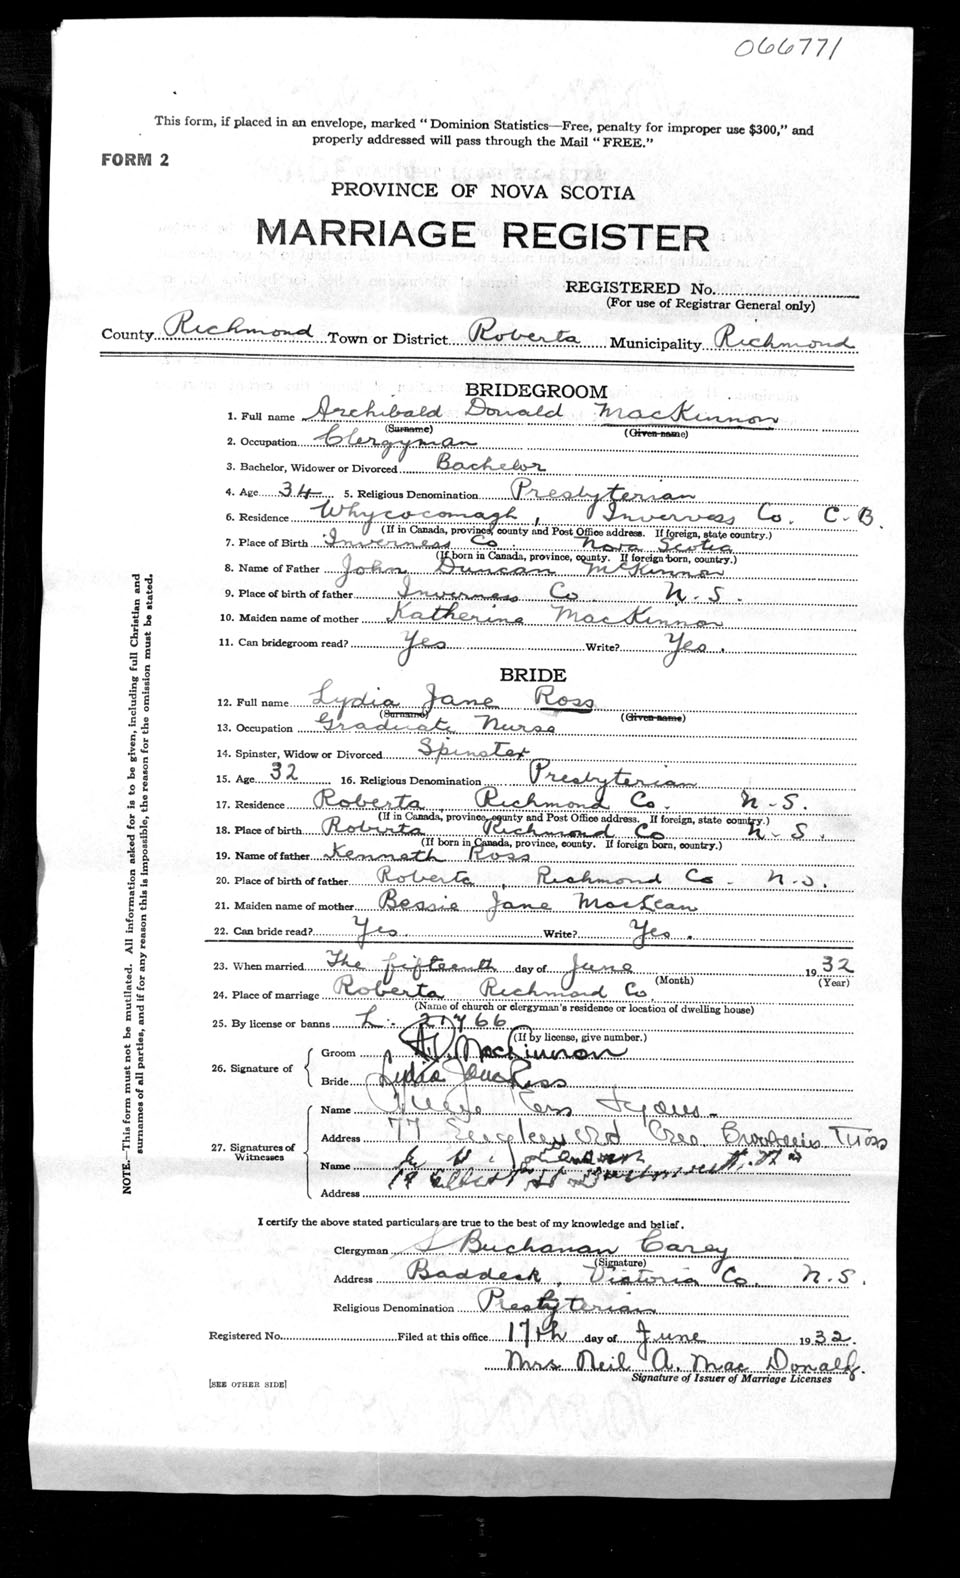 066771
This form, if placed in an envelope, marked "Dominion Statistics—Free, penalty for improper use $300," and
properly addressed will pass through the Mail "FREE."
FORM 2
PROVINCE OF NOVA SCOTIA
MARRIAGE REGISTER
REGISTERED No.
(For use of Registrar General only)
County Richmond Town or District Roberta Municipality Richmond
BRIDEGROOM
1. Full name Archibald Donald MacKinnon
(Surname) (Given name)
2. Occupation Clergyman
3. Bachelor, Widower or Divorced Bachelor
4. Age 34 5. Religious Denomination Presbyterian
6. Residence Whycocomagh, Inverness Co. C.B.
(If in Canada, province, county and Post Office address. If foreign, state country.)
7. Place of Birth Inverness Co. Nova Scotia
(If born in Canada, province, county. If foreign born, country.)
8. Name of Father John Duncan McKinnon
9. Place of birth of father Inverness Co. N.S.
10. Maiden name of mother Katherine MacKinnon
11. Can bridegroom read? Yes Write? Yes.
BRIDE
12. Full name Lydia Jane Ross
(Surname) (Given name)
13. Occupation Graduate Nurse
14. Spinster, Widow or Divorced Spinster
15. Age 32 16. Religious Denomination Presbyterian
17. Residence Roberta, Richmond Co. N.S.
(If in Canada, province, county and Post Office address. If foreign, state country.)
18. Place of birth Roberta Richmond Co N.S.
(If born in Canada, province, county. If foreign born, country.)
19. Name of father Kenneth Ross
20. Place of birth of father Roberta, Richmond Co. N.S.
21. Maiden name of mother Bessie Jane MacLean
22. Can bride read? Yes. Write? Yes.
23. When married The fifteenth day of June 1932
(Month) (Year)
24. Place of marriage Roberta Richmond Co.
(Name of church or clergyman's residence or location of dwelling house)
25. By license or banns L.
(If by license, give number.)
26. Signature of
Groom MacKinnon
Bride Lydia Jane Ross
27. Signatures of Witnesses
Name Ross
Address 77
Name
Address
I certify the above stated particulars are true to the best of my knowledge and belief.
Clergyman Buchanan Carey
(Signature)
Address Baddeck, Victoria Co. N.S.
Religious Denomination Presbyterian
Registered No. Filed at this office 17th day of June 1932.
Mrs Neil A. MacDonald.
Signature of Issuer of Marriage Licenses
[SEE OTHER SIDE]
NOTE.—This form must not be mutilated. All information asked for is to be given, including full Christian and
surnames of all parties, and if for any reason this is impossible, the reason for the omission must be stated.